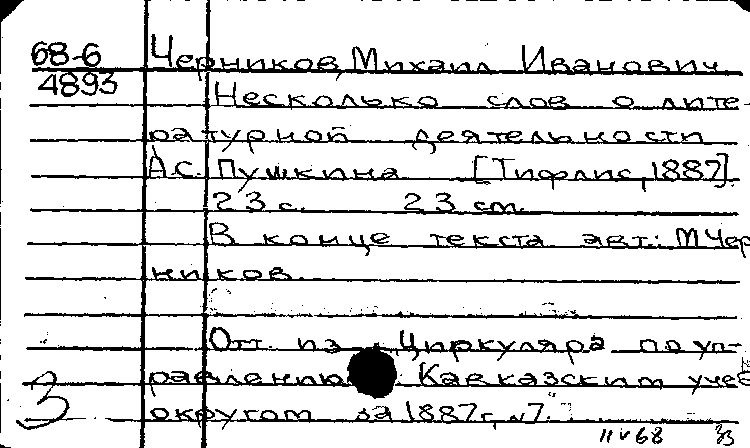 68-6 Черников, Михаил Иванович
4893 Несколько слов о лите-
ратурной деятельности
А.С. Пушкина [Тифлис, 1887].
23 с. 23 см.
В конце текста авт.: М Чер
ников.
Отт. из „Циркуляра по уп-
равлению Кавказским учеб
округом за 1887г, №7."
3
11 V 68